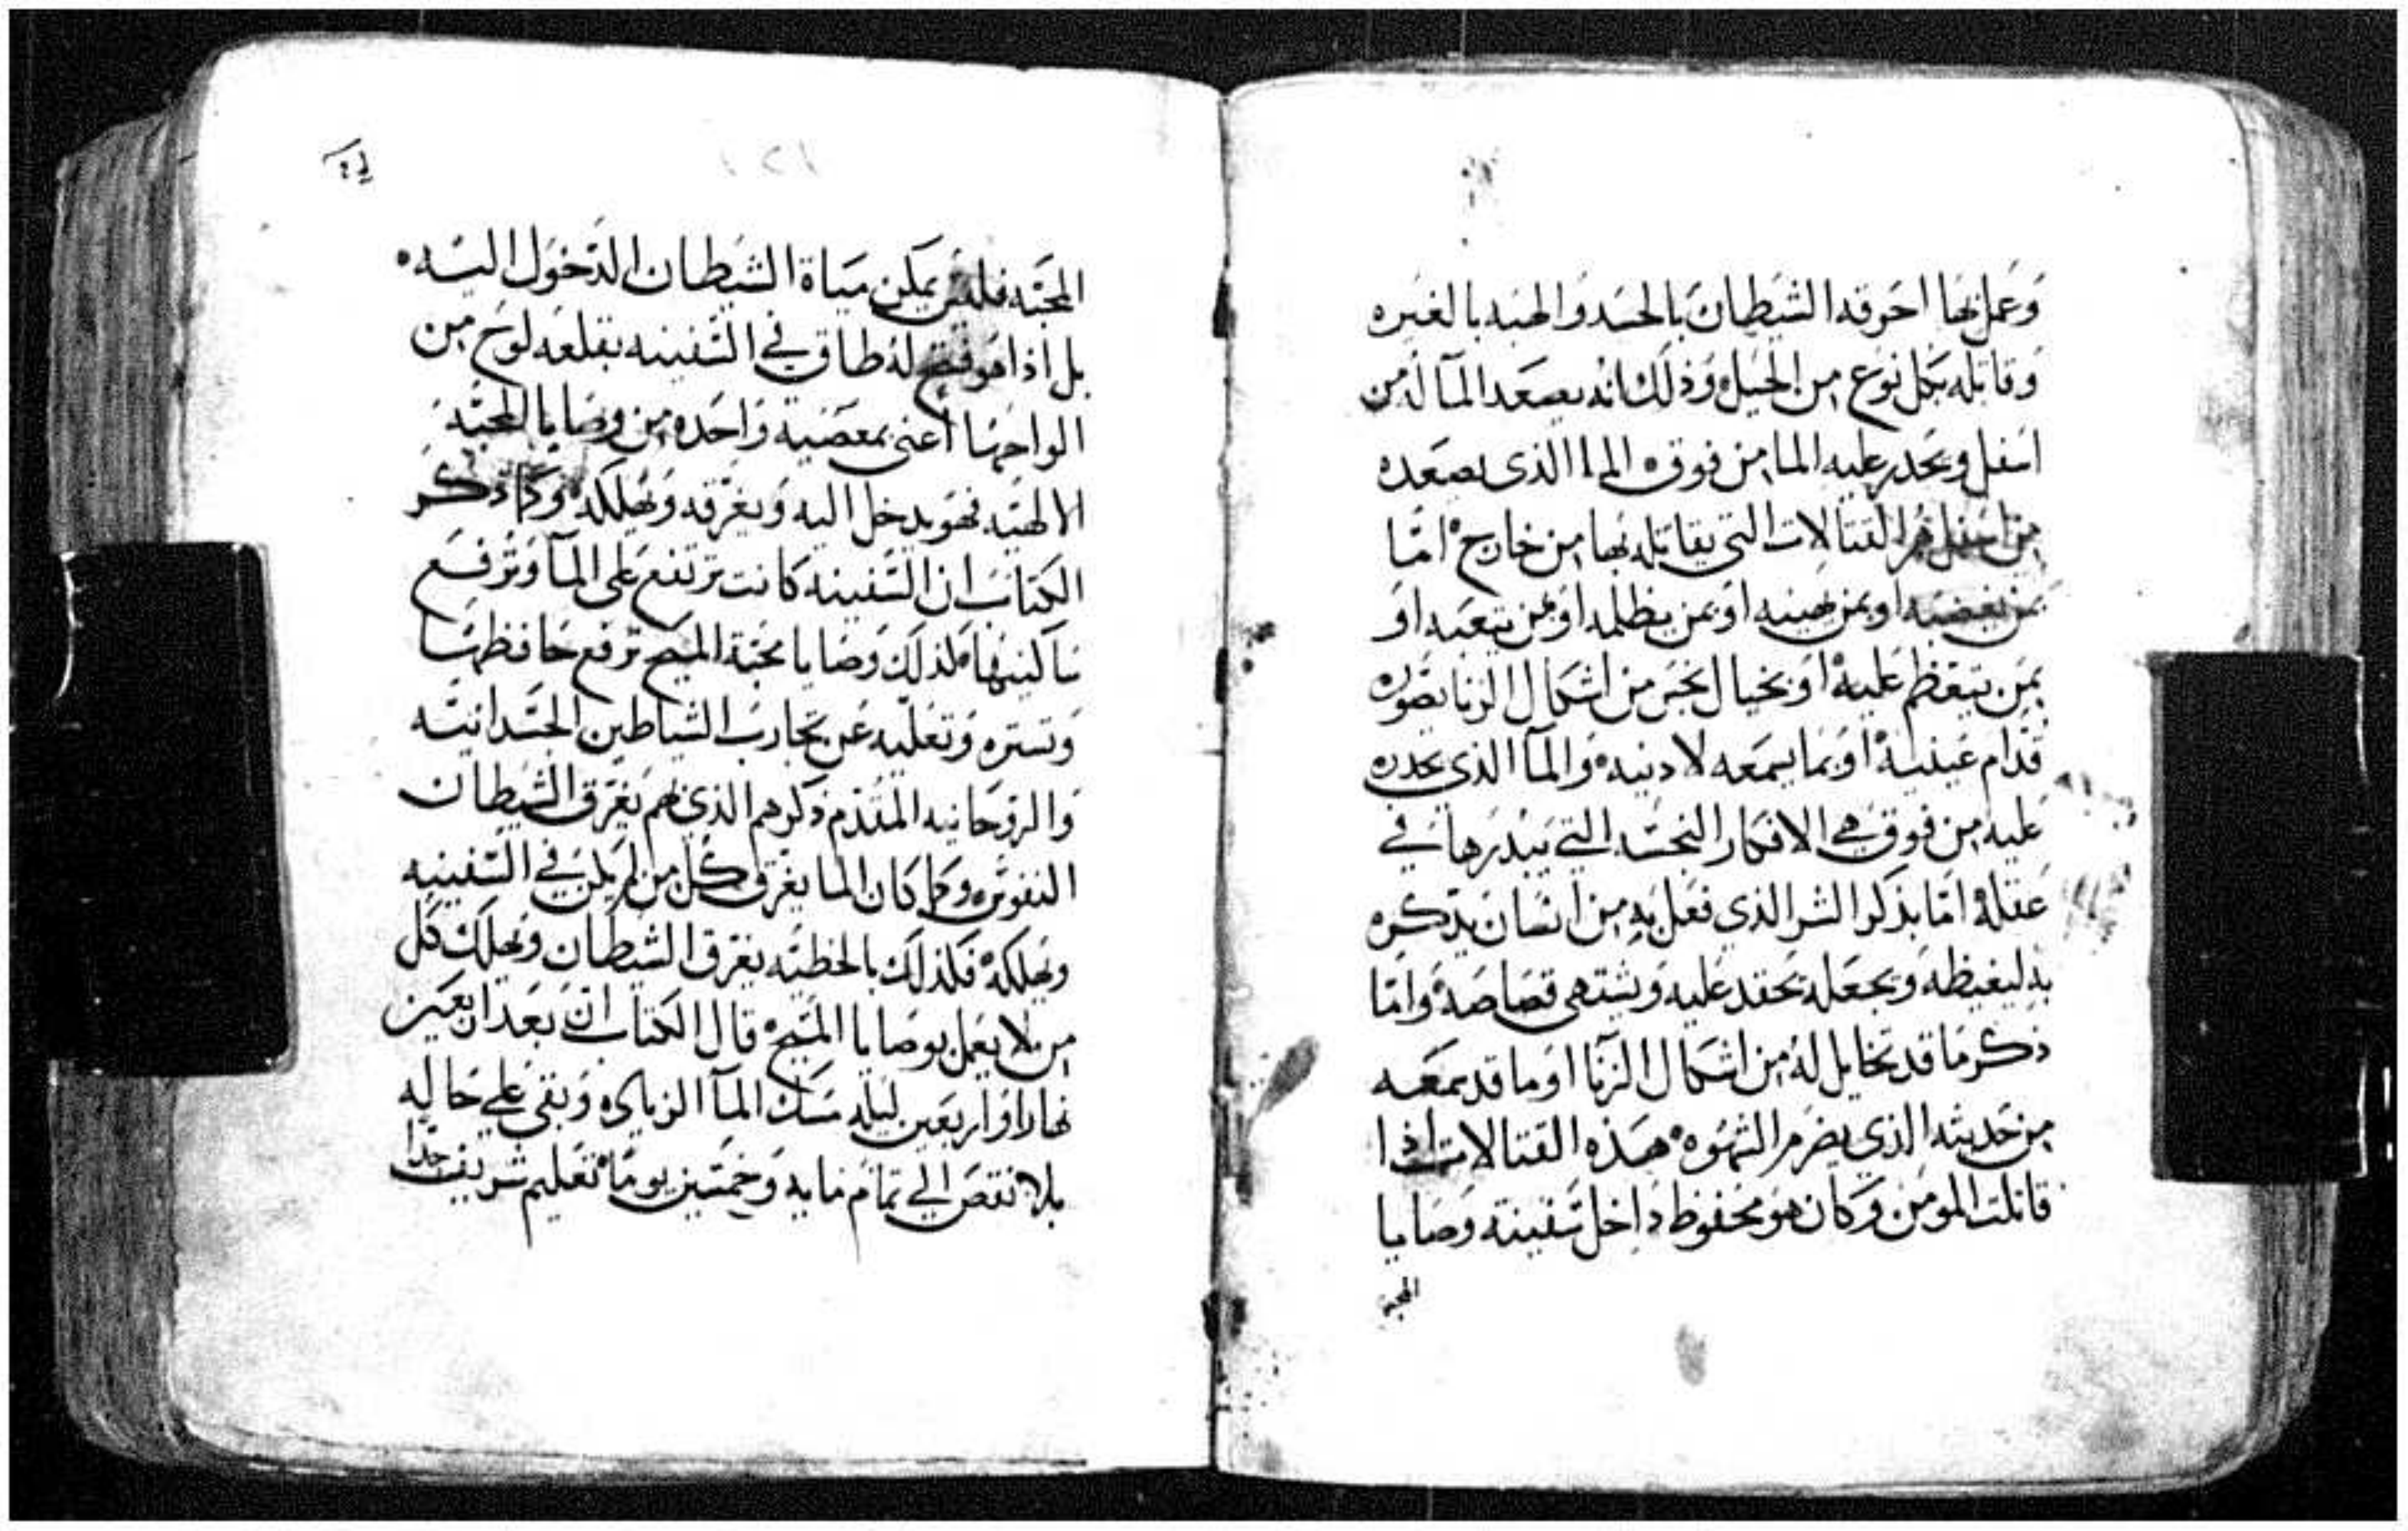 وعمل بها احرقه الشيطان بالحسد والهبه بالغيره
وقاتله بكل نوع من الحيل وذلك انه يصعد المآ له من
اسفل ويحدر عليه الما من فوق المآ الذى يصعده
من اسفل هو القتالات التي يقاتله بها من خارج اما
بمن يغضبه او بمن يهينه او بمن يظلمه او بمن يتعبه او
بمن يتعظم عليه او بخيال نجس من اشكال الزنا يصوره
قدام عينيه او بما يسمعه لادنيه والمآ الذي يحدره
عليه من فوق هي الافكار النجسه التي يبدرها في
عقله اما بذكر الشر الذي فعل به من انسان يذكره
به ليغيظه ويجعله يحقد عليه ويشتهي قصاصه واما
ذكر ما قد تخايل له من اشكال الزنا او ما قد سمعه
من حديثه الذي يضرم الشهوه هذه القتالات اذا
قاتلت المومن وكان هو محفوظ داخل سفينة وصايا
المحبه
١٢١
المحبه فليس يمكن مياة الشيطان الدخول اليه
بل اذا هو فتح له طاق في السفينه بقلعه لوح من
الواحها اعني بمعصية واحده من وصايا المحبه
الالهيه فهو يدخل اليه ويغرقه ويهلكه وكما ذكر
الكتاب ان السفينه كانت ترتفع على المآ وترفع
ساكنيها كذلك وصايا محبة المسيح ترفع حافظها
وتستره وتعليه عن تجارب الشياطين الجسدانيه
والروحانيه المقدم ذكرهم الذي بهم يغرق الشيطان
النفوس وكما كان الما يغرق كل من لم يكن في السفينه
ويهلكه فكذلك بالخطيه يغرق الشيطان ويهلك كل
من لا يعمل بوصايا المسيح قال الكتاب ان بعد اربعين
نهارا واربعين ليله مسك المآ الزياده وبقي على حاله
بلا نقص الي تمام مايه وخمسين يوما تعليم شريف جدا